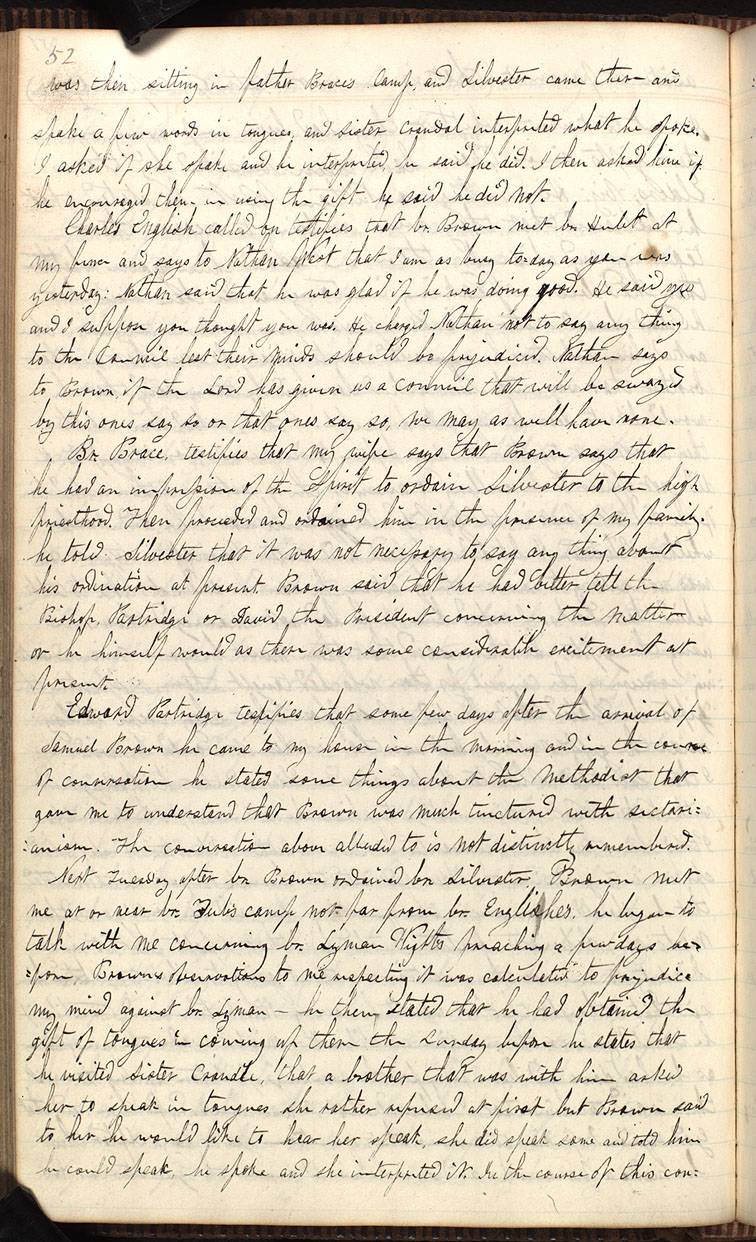 52
was then sitting in father Braces Camp, and Silvester came there and
spake a few words in tongues, and Sister Crandal interpreted what he spoke.
I asked if she spake and he interpreted, he said he did. I then asked him if
he encouraged them in using the gift he said he did not.
Charles English called on testifies that br. Brown met br. Hulet at
my fence and says to Nathan West that I am as busy to-day as you was
yesterday: Nathan said that he was glad if he was doing good. He said yes
and I suppose you thought you was. He charged Nathan not to say any thing
to the Council lest their minds should be prejudiced. Nathan says
to Brown, if the Lord has given us a council that will be swayed
by this ones say so or that ones say so, we may as well have none.
Br. Brace, testifies that my wife says that Brown says that
he had an impression of the Spirit to ordain Silvester to the high
priesthood. Then proceeded and ordained him in the presence of my family.
he told Silvester that it was not necessary to say any thing about
his ordination at present. Brown said that he had better tell the
Bishop, Partridge or David the President concerning the matter
or he himself would as there was some considerable excitement at
present.
Edward Partridge testifies that some few days after the arrival of
Samuel Brown he came to my house in the morning and in the course
of conversation he stated some things about the Methodist that
gave me to understand that Brown was much tinctured with sectari=
=anism. The conversation above alluded to is not distinctly remembered.
Next Tuesday after br. Brown ordained br. Silvester, Brown met
me at or near br. camp not far from br. Englishes. he began to
talk with me concerning br. Lyman Wights preaching a few days be=
=fore. Browns observations to me respecting it was calculated to prejudice
my mind against br. Lyman — he then stated that he had obtained the
gift of tongues in coming up there the Sunday before he states that
he visited Sister Crandle, that a brother that was with him asked
her to speak in tongues she rather refused at first but Brown said
to her he would like to hear her speak, she did speak some and told him
he could speak, he spoke and she interpreted it. In the course of this con=